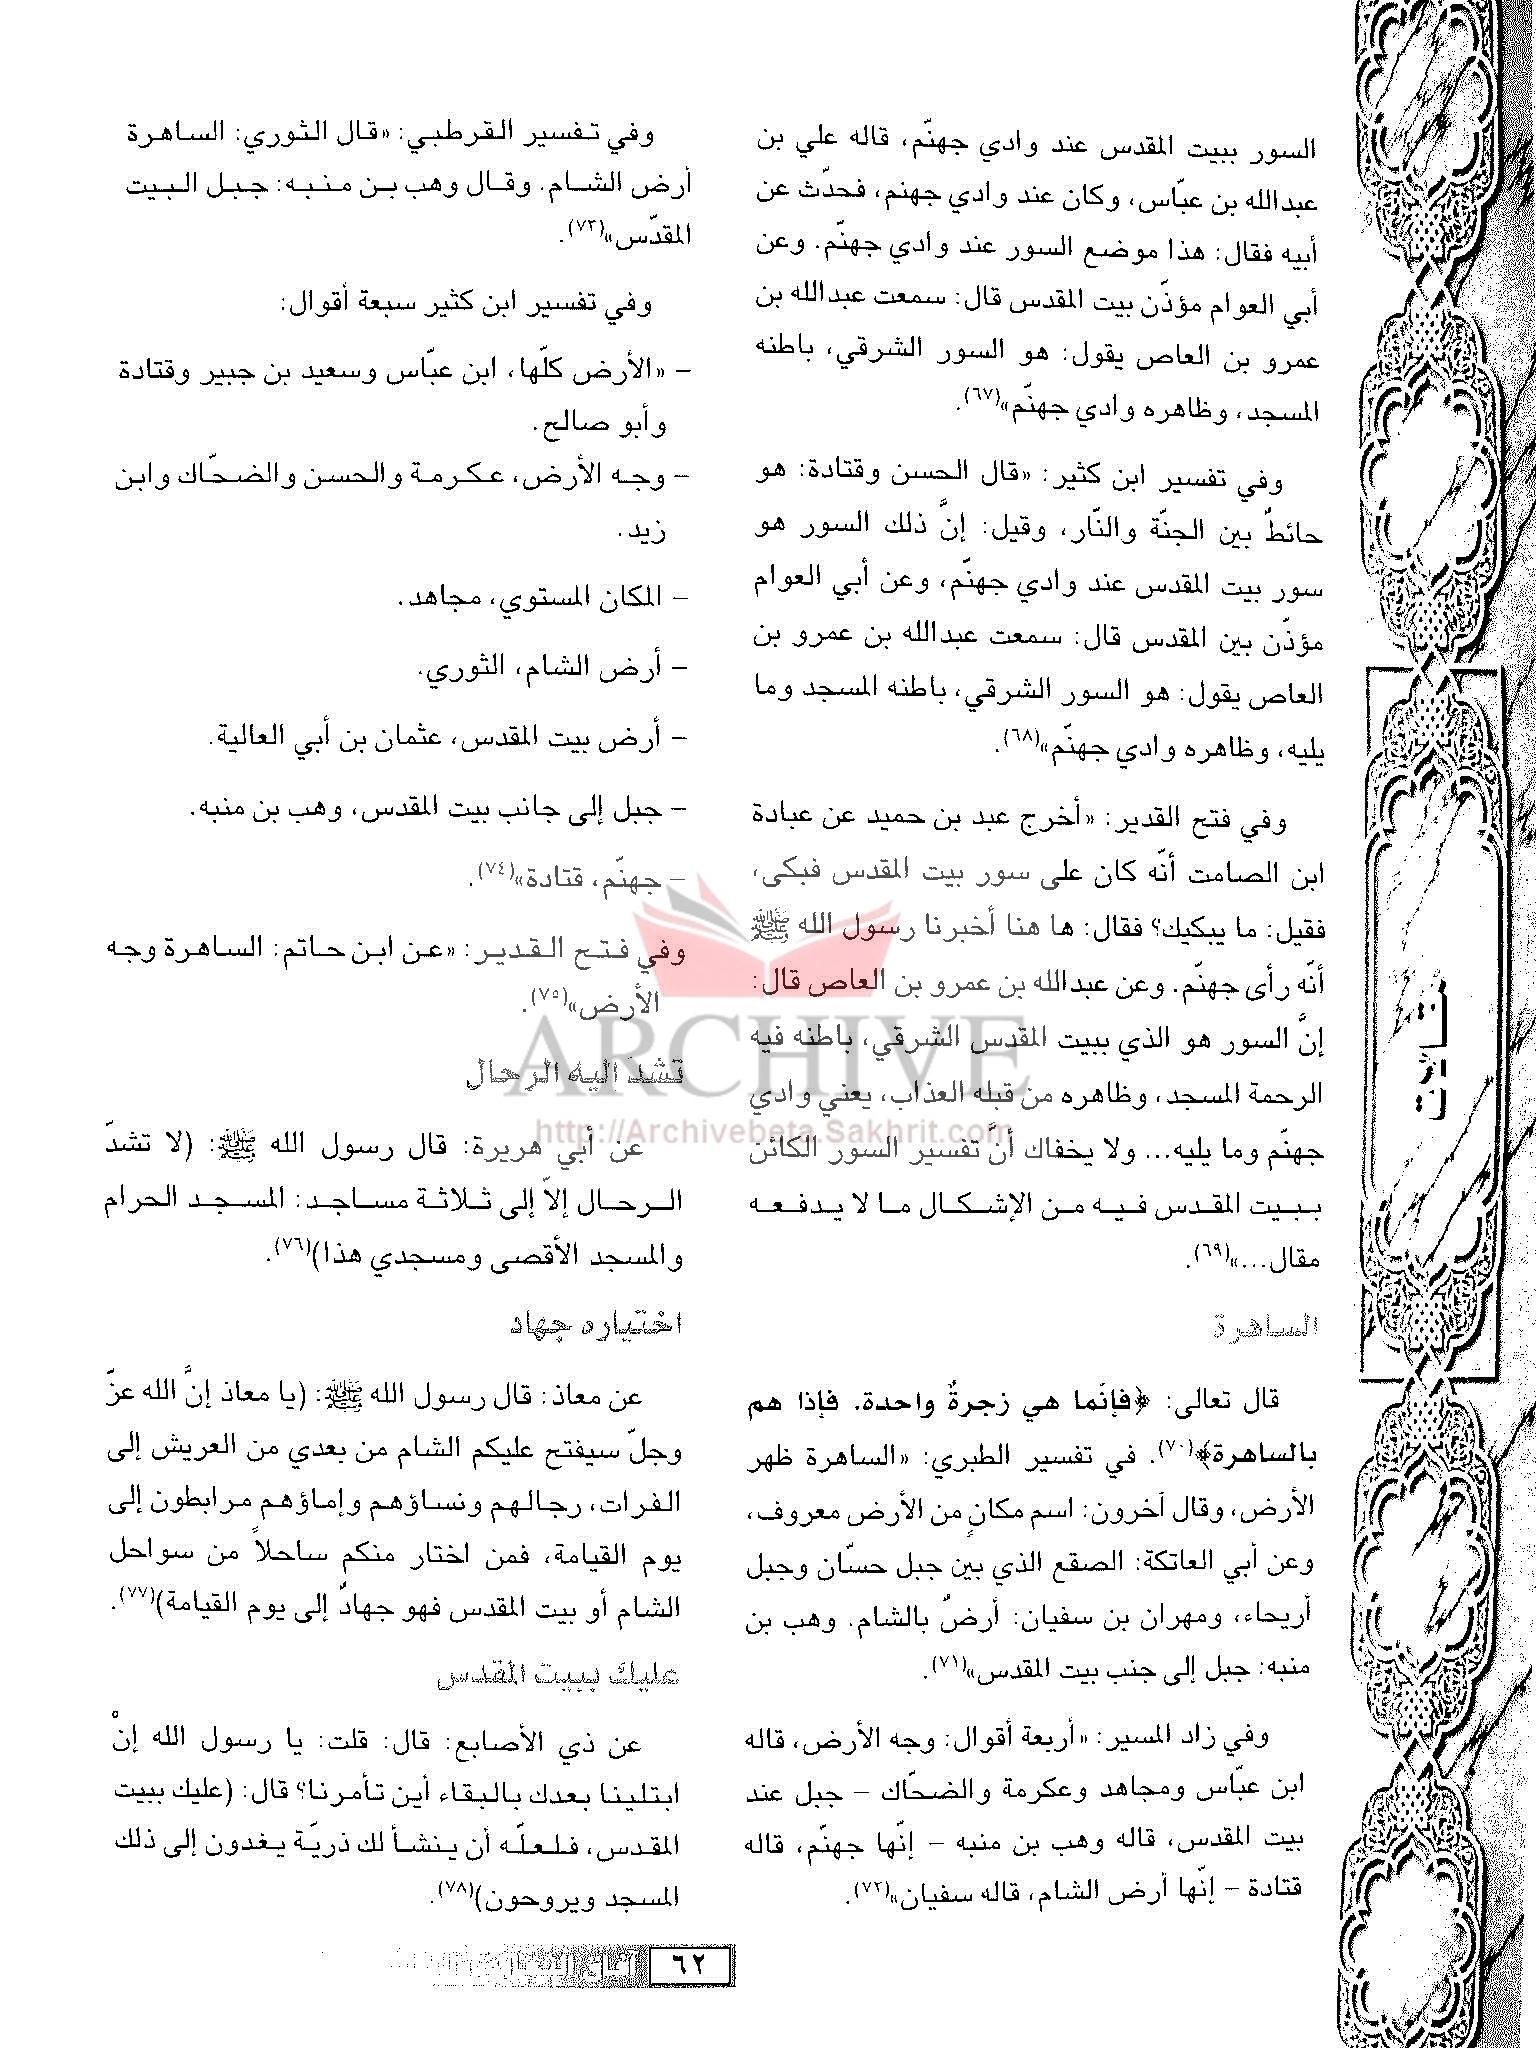 السور ببيت المقدس عند وادي جهنّم، قاله علي بن
عبدالله بن عبّاس، وكان عند وادي جهنم، فحدّث عن
أبيه فقال: هذا موضع السور عند وادي جهنّم. وعن
أبي العوام مؤذّن بيت المقدس قال: سمعت عبدالله بن
عمرو بن العاص يقول: هو السور الشرقي، باطنه
المسجد، وظاهره وادي جهنّم»(٦٧).
وفي تفسير ابن كثير: «قال الحسن وقتادة: هو
حائطٌ بين الجنّة والنّار، وقيل: إنَّ ذلك السور هو
سور بيت المقدس عند وادي جهنّم، وعن أبي العوام
مؤذّن بين المقدس قال: سمعت عبدالله بن عمرو بن
العاص يقول: هو السور الشرقي، باطنه المسجد وما
يليه، وظاهره وادي جهنّم»(٦٨).
وفي فتح القدير: «أخرج عبد بن حميد عن عبادة
ابن الصامت أنّه كان على سور بيت المقدس فبكى،
فقيل: ما يبكيك؟ فقال: ها هنا أخبرنا رسول الله ﷺ
أنّه رأى جهنّم. وعن عبدالله بن عمرو بن العاص قال:
إنَّ السور هو الذي ببيت المقدس الشرقي، باطنه فيه
الرحمة المسجد، وظاهره من قبله العذاب، يعني وادي
جهنّم وما يليه... ولا يخفاك أنَّ تفسير السور الكائن
ببيت المقدس فيه من الإشكال ما لا يدفعه
مقال...»(٦٩).
الساهرة
قال تعالى: ﴿فإنّما هي زجرةٌ واحدة. فإذا هم
بالساهرة﴾(٧٠). في تفسير الطبري: «الساهرة ظهر
الأرض، وقال آخرون: اسم مكانٍ من الأرض معروف،
وعن أبي العاتكة: الصقع الذي بين جبل حسّان وجبل
أريحاء، ومهران بن سفيان: أرضٌ بالشام. وهب بن
منبه: جبل إلى جنب بيت المقدس»(٧١).
وفي زاد المسير: «أربعة أقوال: وجه الأرض، قاله
ابن عبّاس ومجاهد وعكرمة والضحّاك – جبل عند
بيت المقدس، قاله وهب بن منبه – إنّها جهنّم، قاله
قتادة – إنّها أرض الشام، قاله سفيان»(٧٢).
وفي تفسير القرطبي: «قال الثوري: الساهرة
أرض الشام. وقال وهب بن منبه: جبل البيت
المقدّس»(٧٣).
وفي تفسير ابن كثير سبعة أقوال:
– «الأرض كلّها، ابن عبّاس وسعيد بن جبير وقتادة
وأبو صالح.
– وجه الأرض، عكرمة والحسن والضحّاك وابن
زيد.
– المكان المستوي، مجاهد.
– أرض الشام، الثوري.
– أرض بيت المقدس، عثمان بن أبي العالية.
– جبل إلى جانب بيت المقدس، وهب بن منبه.
– جهنّم، قتادة»(٧٤).
وفي فتح القدير: «عن ابن حاتم: الساهرة وجه
الأرض»(٧٥).
تشد اليه الرحال
عن أبي هريرة: قال رسول الله ﷺ: (لا تشدّ
الرحال إلاّ إلى ثلاثة مساجد: المسجد الحرام
والمسجد الأقصى ومسجدي هذا)(٧٦).
اختياره جهاد
عن معاذ: قال رسول الله ﷺ: (يا معاذ إنَّ الله عزّ
وجلّ سيفتح عليكم الشام من بعدي من العريش إلى
الفرات، رجالهم ونساؤهم وإماؤهم مرابطون إلى
يوم القيامة، فمن اختار منكم ساحلاً من سواحل
الشام أو بيت المقدس فهو جهادٌ إلى يوم القيامة)(٧٧).
عليك ببيت المقدس
عن ذي الأصابع: قال: قلت: يا رسول الله إنْ
ابتلينا بعدك بالبقاء أين تأمرنا؟ قال: (عليك ببيت
المقدس، فلعلّه أن ينشأ لك ذريّة يغدون إلى ذلك
المسجد ويروحون)(٧٨).
٦٢
ARCHIVE
http://Archivebeta.Sakhrit.com